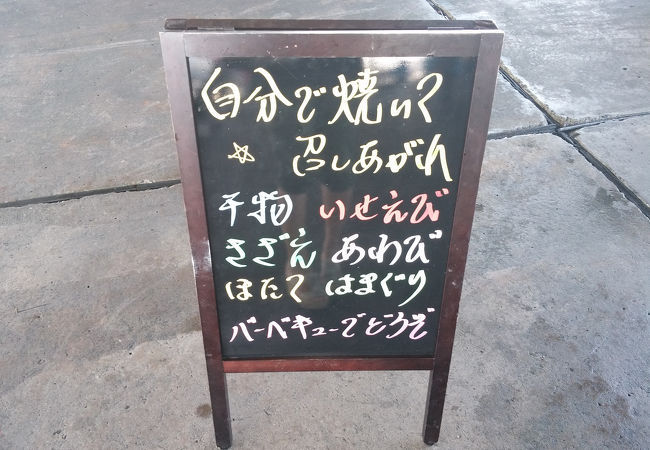 自分で焼いて
☆ 召しあがれ
干物 いせえび
さざえ あわび
ほたて はまぐり
バーベキューでどうぞ